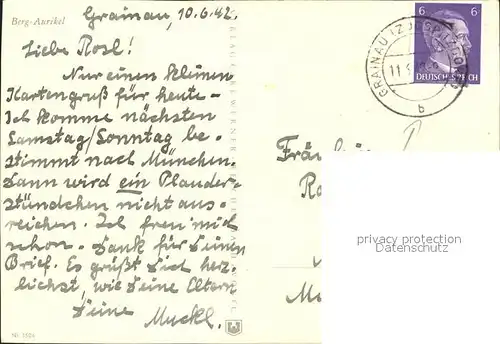 Berg-Aurikel
Grainau, 10.6.42.
Liebe Rosl!
Nur einen kleinen
Kartengruß für heute –
Ich komme nächsten
Samstag/Sonntag be-
stimmt nach München.
Dann wird ein Plauder-
stündchen nicht aus-
reichen. Ich freu mich
schon. Dank für Deinen
Brief. Es grüßt Dich herz-
lichst, wie Deine Eltern
Deine
Muckl.
6 6
DEUTSCHES REICH
GRAINAU
b
Fräulein
privacy protection
Datenschutz